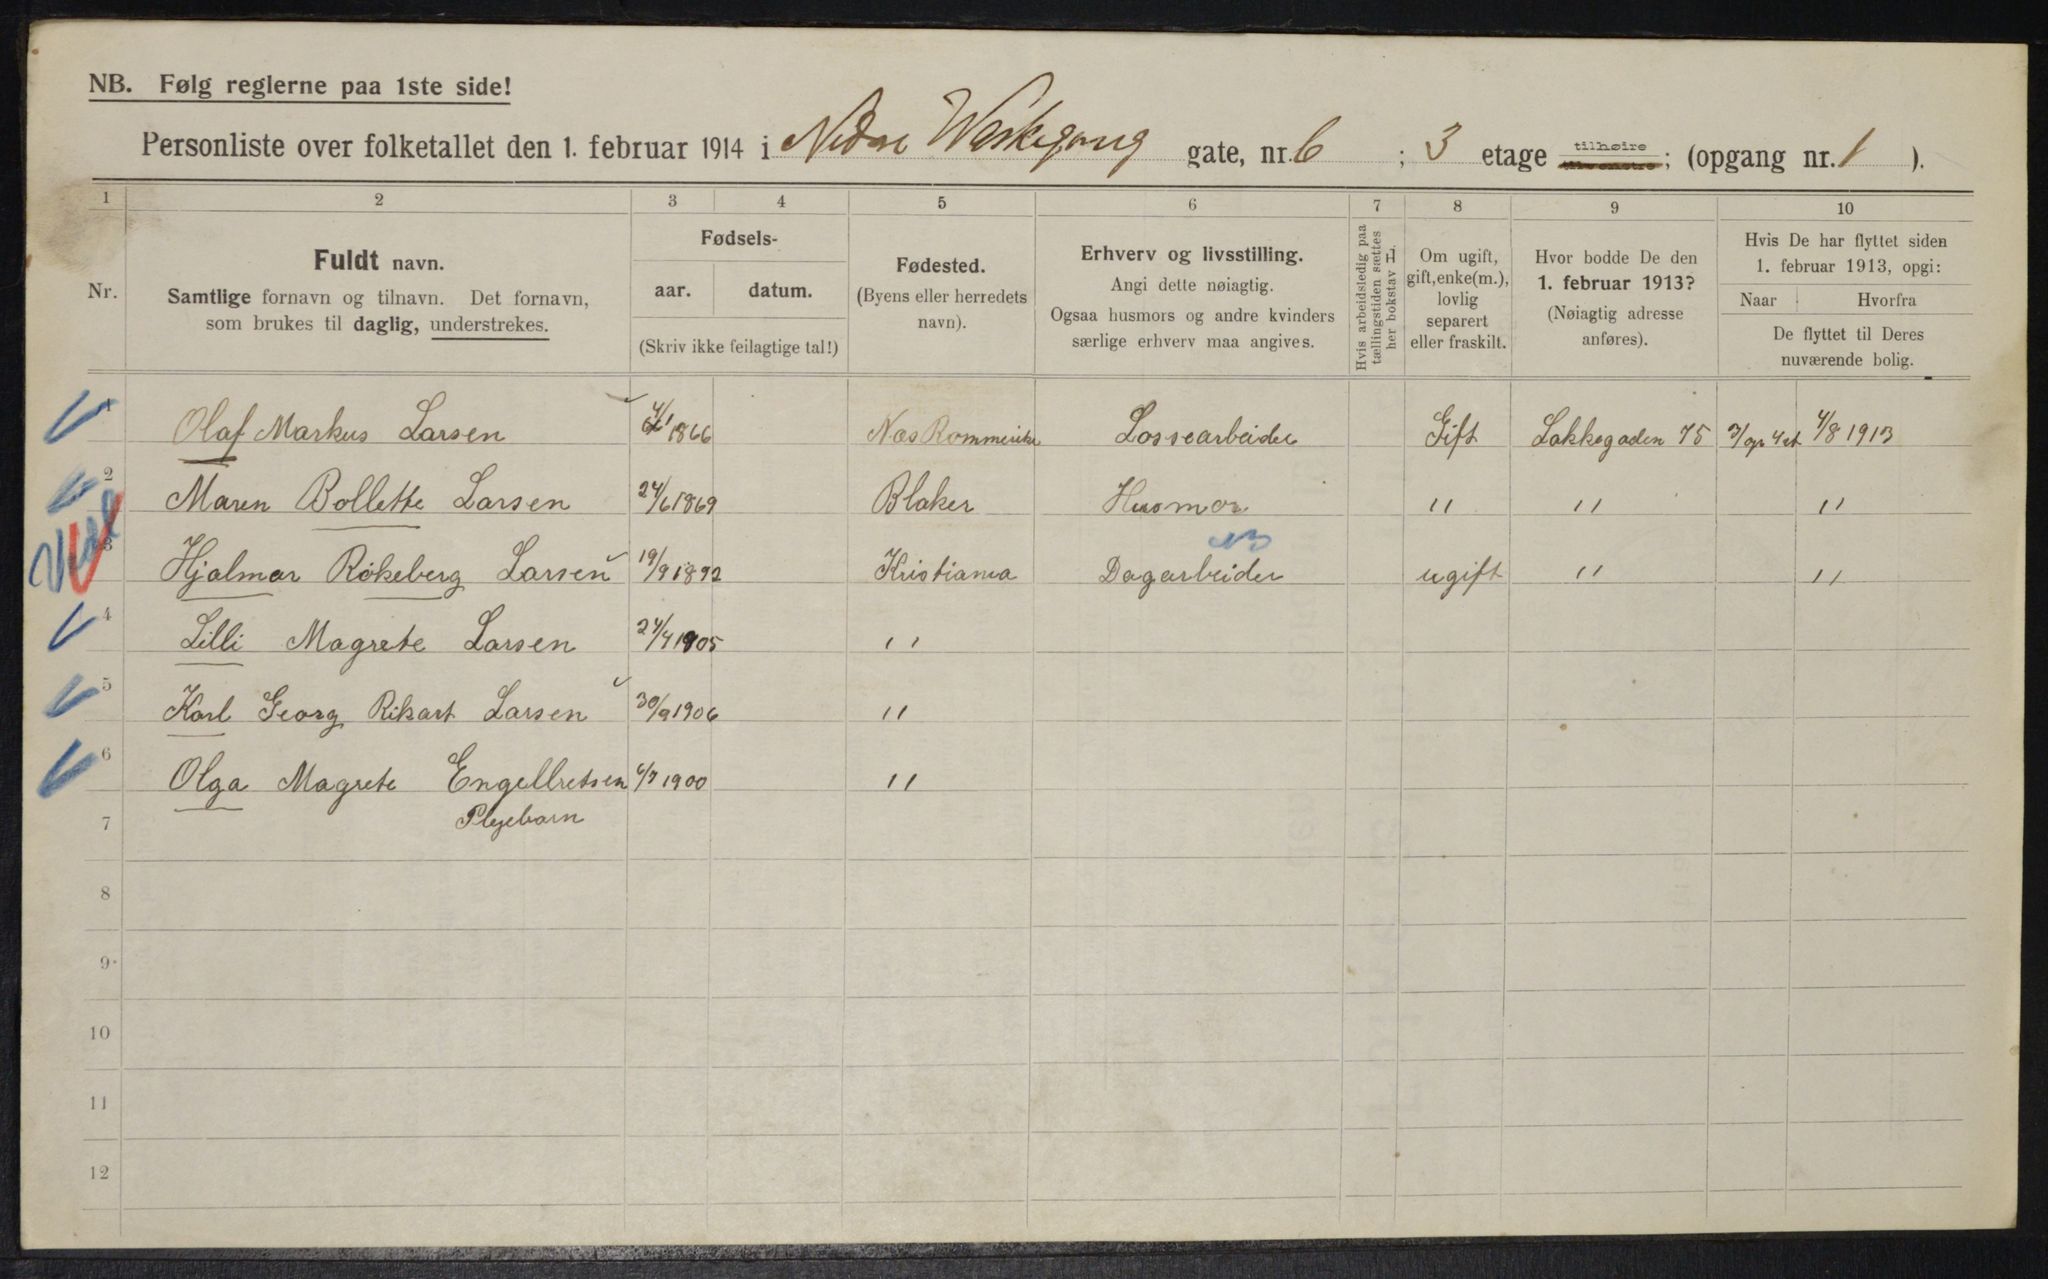 NB. Følg reglerne paa 1ste side!
Personliste over folketallet den 1. februar 1914 i Nedre Waskegang gate, nr. 6 ; 3 etage tilhøire ; (opgang nr. 1 ).
1 2 3 4 5 6 7 8 9 10
Nr.
Fuldt navn.
Samtlige fornavn og tilnavn. Det fornavn,
som brukes til daglig, understrekes.
Fødsels-
aar. datum.
(Skriv ikke feilagtige tal!)
Fødested.
(Byens eller herredets
navn).
Erhverv og livsstilling.
Angi dette nøiagtig.
Ogsaa husmors og andre kvinders
særlige erhverv maa angives.
Hvis arbeidsledig paa
tællingstiden sættes
her bokstav L.
Om ugift,
gift, enke(m.),
lovlig
separert
eller fraskilt.
Hvor bodde De den
1. februar 1913?
(Nøiagtig adresse
anføres).
Hvis De har flyttet siden
1. februar 1913, opgi:
Naar Hvorfra
De flyttet til Deres
nuværende bolig.
1 Olaf Markus Larsen 1866 Næs Rommerike Lossearbeider Gift Lakkegaden 75 4/8 1913
2 Maren Bollette Larsen 24/6 1869 Blaker Husmor " " "
3 Hjalmar Rökeberg Larsen 19/9 1892 Kristiania Dagarbeider ugift " "
4 Lilli Magrete Larsen 24/4 1905 "
5 Karl Georg Rikart Larsen 30/9 1906 "
6 Olga Magrete Engelbretsen 6/7 1900 "
Plejebarn
7
8
9
10
11
12